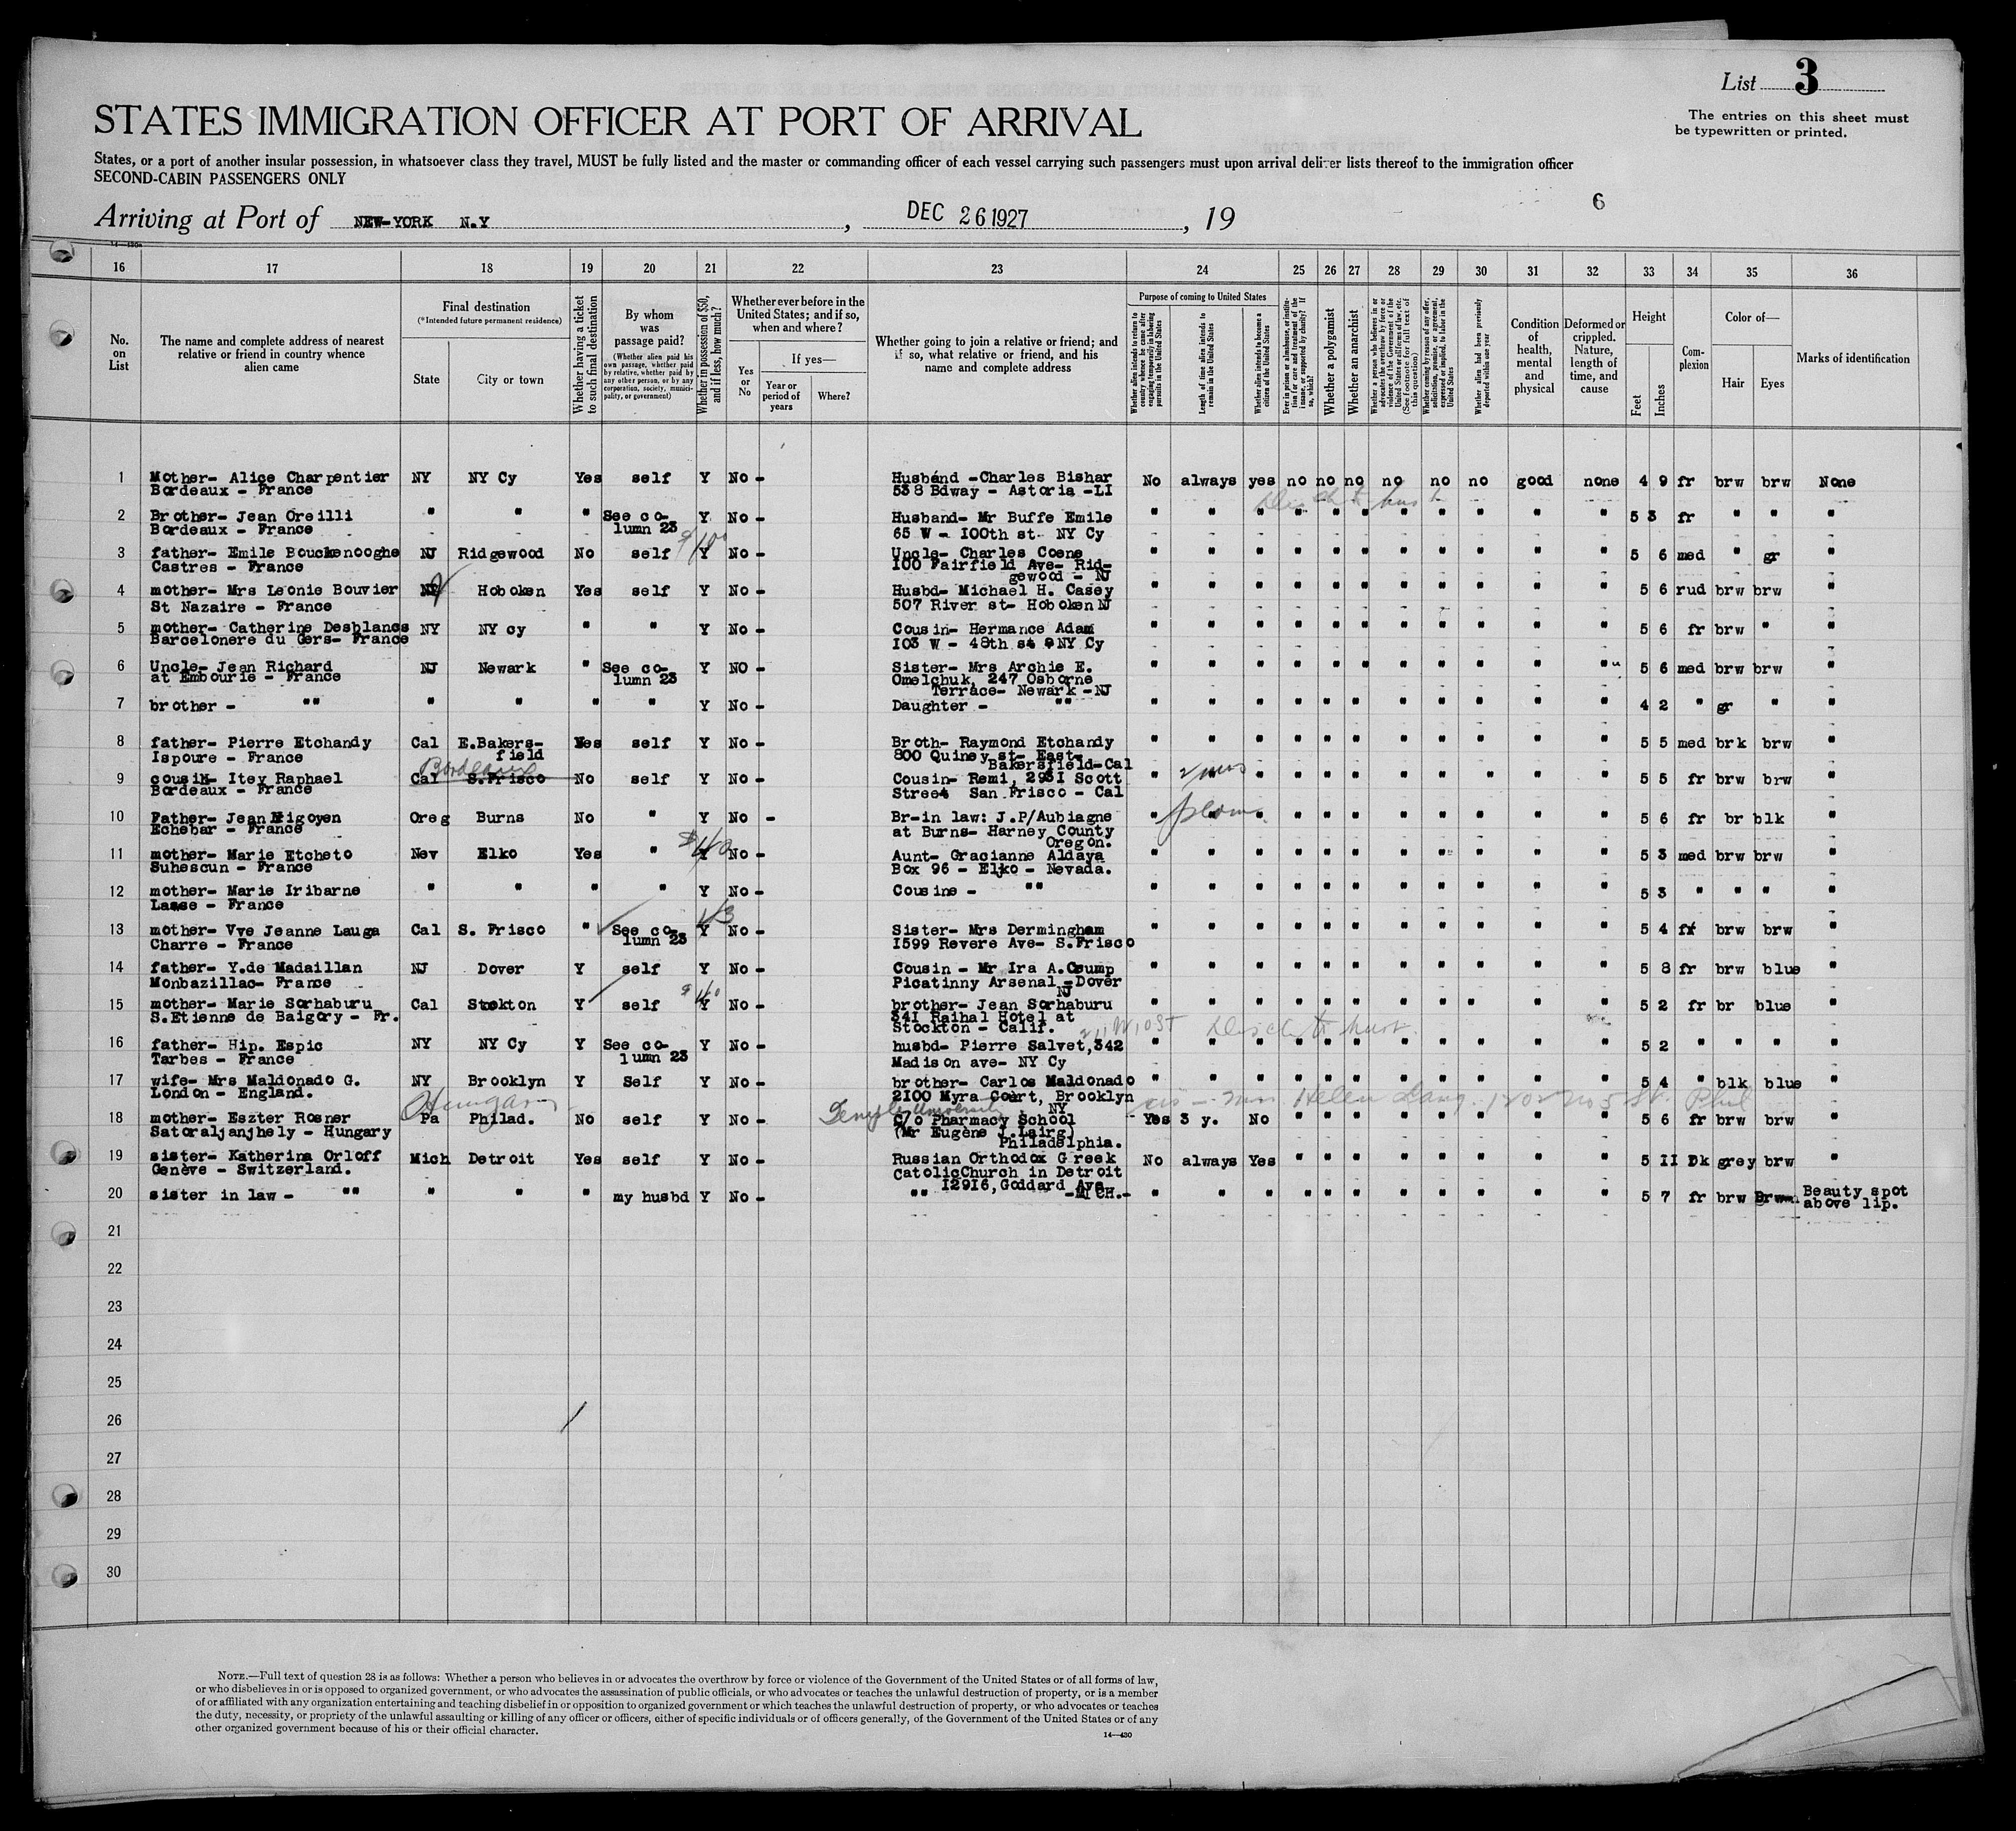 List 3
The entries on this sheet must
be typewritten or printed.
STATES IMMIGRATION OFFICER AT PORT OF ARRIVAL
States, or a port of another insular possession, in whatsoever class they travel, MUST be fully listed and the master or commanding officer of each vessel carrying such passengers must upon arrival deliver lists thereof to the immigration officer
SECOND-CABIN PASSENGERS ONLY
6
Arriving at Port of NEW-YORK N.Y , DEC 26 1927 , 19
16 17 18 19 20 21 22 23 24 25 26 27 28 29 30 31 32 33 34 35 36
No. on List
The name and complete address of nearest relative or friend in country whence alien came
Final destination
(*Intended future permanent residence)
State
City or town
Whether having a ticket to such final destination
By whom was passage paid?
(Whether alien paid his own passage, whether paid by relative, whether paid by any other person, or by any corporation, society, municipality, or government)
Whether in possession of $50, and if less, how much?
Whether ever before in the United States; and if so, when and where?
Yes or No
If yes—
Year or period of years
Where?
Whether going to join a relative or friend; and if so, what relative or friend, and his name and complete address
Purpose of coming to United States
Whether alien intends to return to country whence he came after engaging temporarily in laboring pursuits in the United States
Length of time alien intends to remain in the United States
Whether alien intends to become a citizen of the United States
Ever in prison or almshouse, or institution for care and treatment of the insane, or supported by charity? If so, which?
Whether a polygamist
Whether an anarchist
Whether a person who believes in or advocates the overthrow by force or violence of the Government of the United States or all forms of law, etc. (See footnote for full text of this question)
Whether coming by reason of any offer, solicitation, promise, or agreement, expressed or implied, to labor in the United States
Whether alien had been previously deported within one year
Condition of health, mental and physical
Deformed or crippled. Nature, length of time, and cause
Height
Feet
Inches
Complexion
Color of—
Hair
Eyes
Marks of identification
1 Mother- Alice Charpentier NY NY Cy Yes self Y No - Husband -Charles Bishar No always yes no no no no no no good none 4 9 fr brw brw None
Bordeaux - France 538 Bdway - Astoria -LI
2 Brother- Jean Oreilli " " " See co- Y No - Husband- Mr Buffe Emile " " " " " " " " " " " 5 3 fr " " "
Bordeaux - France lumn 23 65 W - I00th st- NY Cy
3 father- Emile Bouckenooghe NJ Ridgewood No self Y No - Uncle- Charles Coene " " " " " " " " " " " 5 6 med " gr "
Castres - France I00 Fairfield Ave- Rid-
gewood - NJ
4 mother- Mrs Leonie Bouvier Hoboken Yes self Y No - Husbd- Michael H. Casey " " " " " " " " " " " 5 6 rud brw brw "
St Nazaire - France 507 River st- Hoboken NJ
5 mother- Catherine Desblancs NY NY cy " " Y No - Cousin- Hermance Adam " " " " " " " " " " " 5 6 fr brw " "
Barcelonere du Gers- France I03 W - 48th st NY Cy
6 Uncle- Jean Richard NJ Newark " See co- Y NO - Sister- Mrs Archie E. " " " " " " " " " " " 5 6 med brw brw "
at Embourie - France lumn 23 Omelchuk, 247 Osborne
Terrace- Newark -NJ
7 brother - "" " " " " Y No - Daughter - "" " " " " " " " " " " " 4 2 " gr " "
8 father- Pierre Etchandy Cal E.Bakers- Yes self Y No - Broth- Raymond Etchandy " " " " " " " " " " " 5 5 med brk brw "
Ispoure - France field 800 Quincy st- East-
Bakersfield-Cal
Bordeaux
9 cousin- Itey Raphael Cal S.Frisco No self Y No - Cousin- Remi, 2931 Scott " " " " " " " " " " " 5 5 fr brw brw "
Bordeaux - France Street San Frisco - Cal
10 Father- Jean Erigoyen Oreg Burns No " Y No - Br-in law: J.P/Aubiagne " " " " " " " " " " " 5 6 fr br blk "
Echebar - France at Burns- Harney County
Oregon.
11 mother- Marie Etcheto Nev Elko Yes " Y No - Aunt- Gracianne Aldaya " " " " " " " " " " " 5 3 med brw brw "
Suhescun - France Box 96 - Elko - Nevada.
12 mother- Marie Iribarne " " " " Y No - Cousine - "" " " " " " " " " " " " 5 3 " " " "
Lasse - France
13 mother- Vve Jeanne Lauga Cal S. Frisco " See co- Y No - Sister- Mrs Dermingham " " " " " " " " " " " 5 4 fr brw brw "
Charre - France lumn 23 I599 Revere Ave- S.Frisco
14 father- Y.de Madaillan NJ Dover Y self Y No - Cousin - Mr Ira A.Crump " " " " " " " " " " " 5 8 fr brw blue "
Monbazillac- France Picatinny Arsenal -Dover
NJ
15 mother- Marie Sorhaburu Cal Stockton Y self Y No - brother- Jean Sorhaburu " " " " " " " " " " " 5 2 fr br blue "
S.Etienne de Baigory - Fr. 341 Raihal Hotel at
Stockton - Calif.
16 father- Hip. Espic NY NY Cy Y See co- Y No - husbd- Pierre Salvet,342 " " " " " " " " " " " 5 2 " " " "
Tarbes - France lumn 23 Madison ave- NY Cy
17 wife- Mrs Maldonado G. NY Brooklyn Y Self Y No - brother- Carlos Maldonado " " " " " " " " " " " 5 4 " blk blue "
London - England. 2I00 Myra Court, Brooklyn
NY
Hungary Temple University Mrs Helen Lang 1202 No 5 St. Phil
18 mother- Eszter Rosner Pa Philad. No self Y No - C/o Pharmacy School Yes 3 y. No " " " " " " " " 5 6 fr brw brw "
Satoraljanjhely - Hungary (Mr Eugène J.Lairg)
Philadelphia.
19 sister- Katherina Orloff Mich Detroit Yes self Y No - Russian Orthodox Greek No always Yes " " " " " " " " 5 II Dk grey brw "
Genève - Switzerland. CatolicChurch in Detroit
I29I6, Goddard Ave
20 sister in law - "" " " " my husbd Y No - "" -MICH.- " " " " " " " " " " " 5 7 fr brw Brwn Beauty spot
above lip.
21
22
23
24
25
26
27
28
29
30
NOTE.—Full text of question 28 is as follows: Whether a person who believes in or advocates the overthrow by force or violence of the Government of the United States or of all forms of law,
or who disbelieves in or is opposed to organized government, or who advocates the assassination of public officials, or who advocates or teaches the unlawful destruction of property, or is a member
of or affiliated with any organization entertaining and teaching disbelief in or opposition to organized government or which teaches the unlawful destruction of property, or who advocates or teaches
the duty, necessity, or propriety of the unlawful assaulting or killing of any officer or officers, either of specific individuals or of officers generally, of the Government of the United States or of any
other organized government because of his or their official character.
14—430